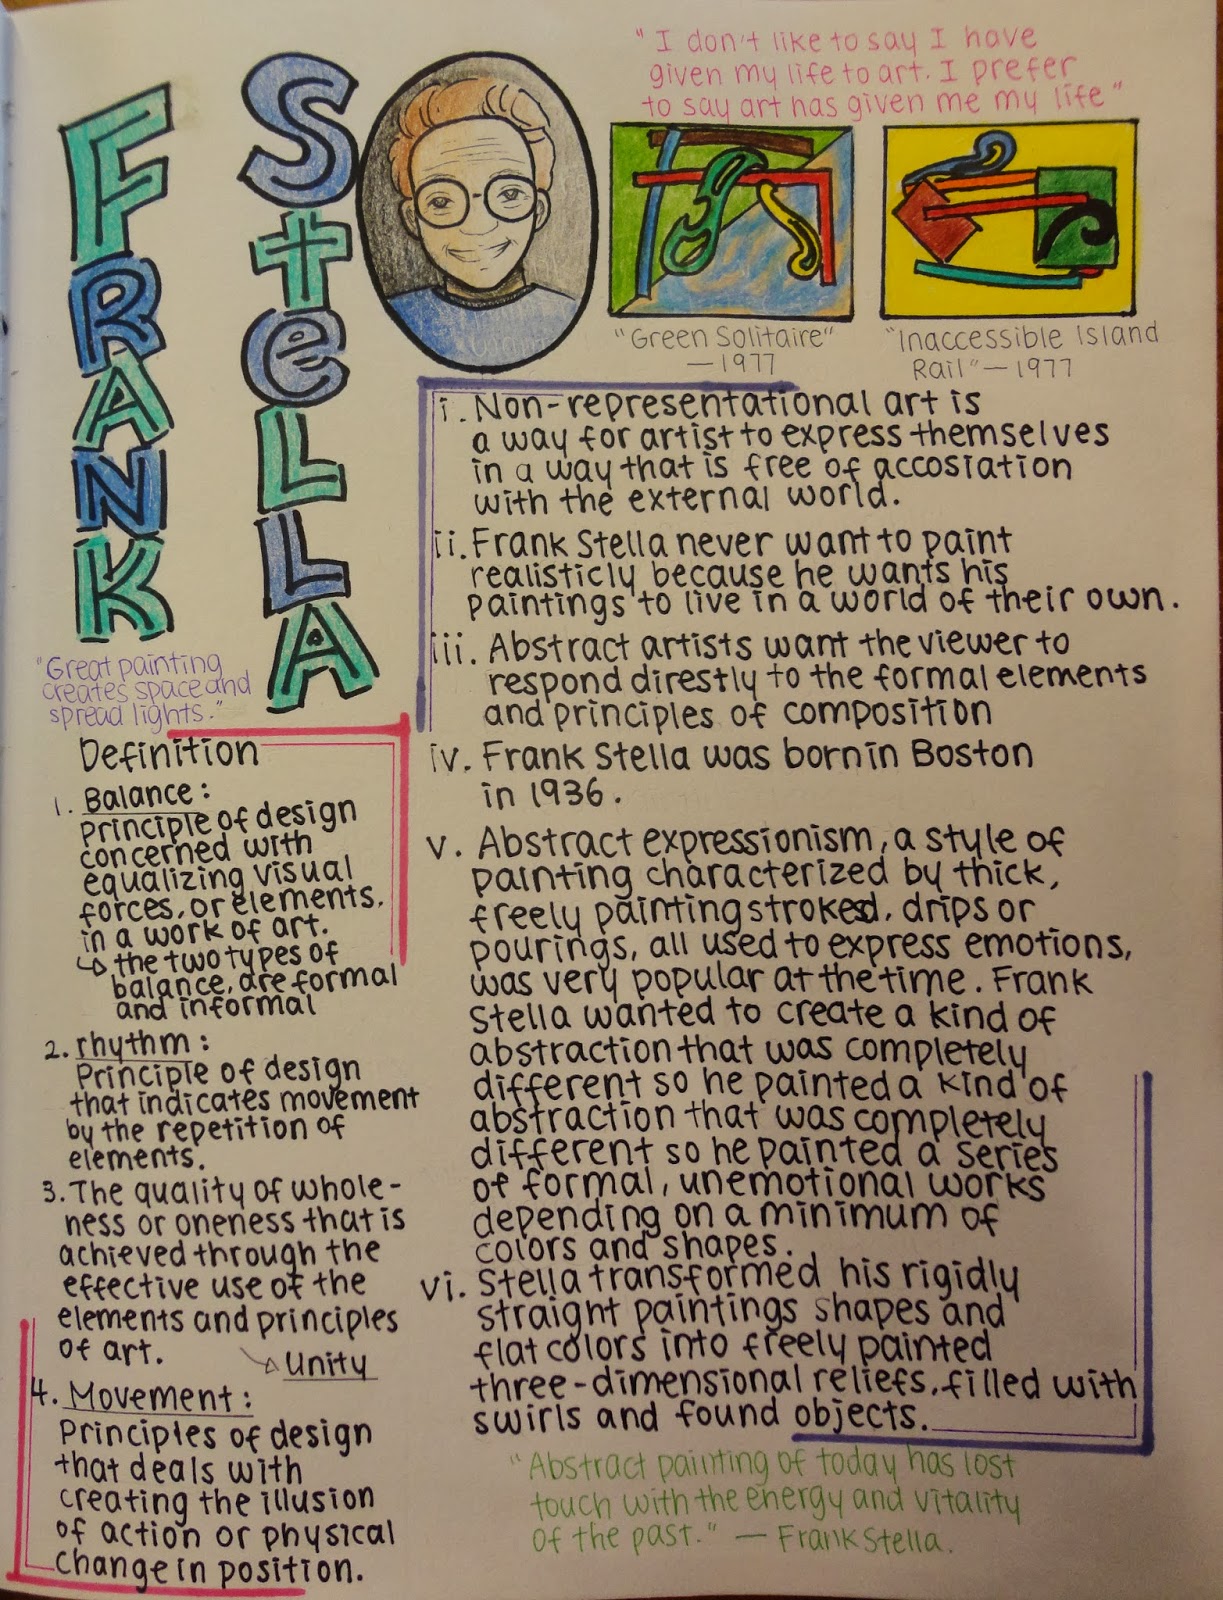 FRANK
Stella
"I don't like to say I have
given my life to art. I prefer
to say art has given me my life"
"Green Solitaire"
—1977
"Inaccessible Island
Rail"—1977
"Great painting
creates space and
spread lights."
Definition
1. Balance:
principle of design
concerned with
equalizing visual
forces, or elements,
in a work of art.
↳ the two types of
balance, are formal
and informal
2. rhythm:
Principle of design
that indicates movement
by the repetition of
elements.
3. The quality of whole-
ness or oneness that is
achieved through the
effective use of the
elements and principles
of art.
↳ Unity
4. Movement:
Principles of design
that deals with
creating the illusion
of action or physical
change in position.
i. Non-representational art is
a way for artist to express themselves
in a way that is free of accosiation
with the external world.
ii. Frank Stella never want to paint
realisticly because he wants his
paintings to live in a world of their own.
iii. Abstract artists want the viewer to
respond direstly to the formal elements
and principles of composition
iv. Frank Stella was born in Boston
in 1936.
v. Abstract expressionism, a style of
painting characterized by thick,
freely painting stroked, drips or
pourings, all used to express emotions,
was very popular at the time. Frank
Stella wanted to create a kind of
abstraction that was completely
different so he painted a kind of
abstraction that was completely
different so he painted a series
of formal, unemotional works
depending on a minimum of
colors and shapes.
vi. Stella transformed his rigidly
straight paintings shapes and
flat colors into freely painted
three-dimensional reliefs, filled with
swirls and found objects.
"Abstract painting of today has lost
touch with the energy and vitality
of the past." — Frank Stella.